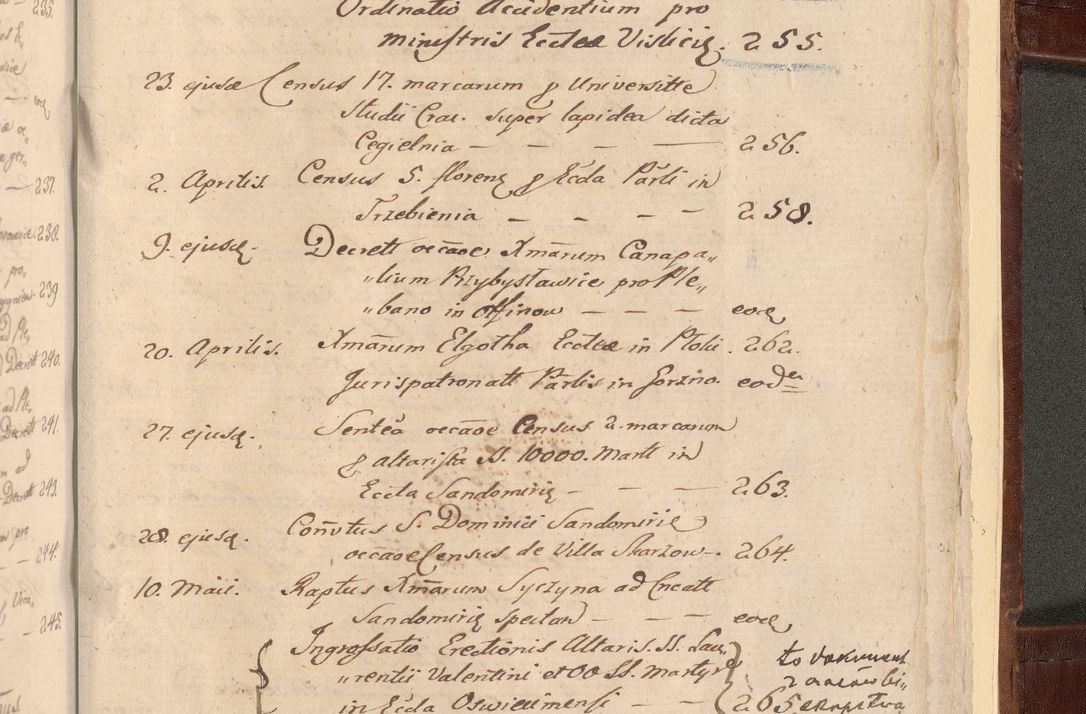 Ordinatio Accidentium pro
ministris Eccłae Vislicię. 255.
23. ejusd Census 17. marcarum p Universitte
Studii Crac. super lapidea dicta
Cegielnia — — — — 256.
2. Aprilis. Census 5. florenę p Eccla Parli in
Trzebienia — — — — 258.
9. ejusdę. Decrett occāoe Xmārum Canapa„
„lium Przybysławice pro Ple„
„bano in Offinow — — — eodę
20. Aprilis. Xmārum Elgotha Eccłae in Ploki. 262.
Jurispatronatt Parlis in Gorzno. eodem
27. ejusdę. Sentēa occāoe Census 2. marcarum
p altarista SS. 10000. Martt in
Eccla Sandomirię — — — 263.
28. ejusdę. Coñvtus S. Dominici Sandomirię
occāoe Census de Villa Skarzow —. 264.
10. Maii. Raptus Xmārum Syczyna ad Cncatt
Sandomirię spectan — — — eodę
Ingrossatio Erectionis Altaris SS. Lau„
„rentii Valentini et OO SS. Martyr
in Eccla Oswiecimensi — 265.
to dokument
z czasów bi„
skupstwa
235.
237.
238.
239
240.
241.
243.
244.
245.